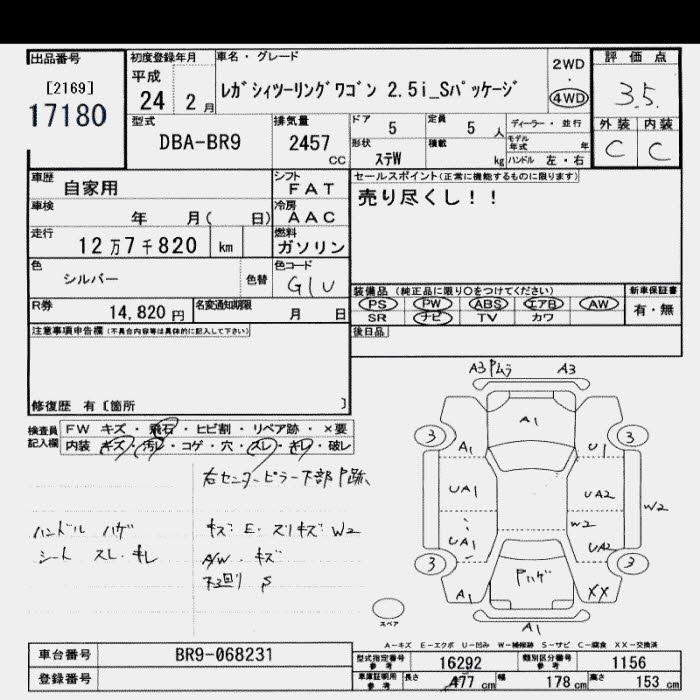 出品番号
[2169]
17180
初度登録年月
平成
24 2月
車名・グレード
ﾚｶﾞｼｨﾂｰﾘﾝｸﾞﾜｺﾞﾝ 2.5i_Sﾊﾟｯｹｰｼﾞ
2WD
・
4WD
評価点
3.5
外装 内装
C C
型式
DBA-BR9
排気量
2457
CC
ドア
5
定員
5 人
ディーラー・並行
形状
ｽﾃW
積載
kg
モデル年式 年
ハンドル 左・右
車歴
自家用
シフト
FAT
車検
年 月( 日)
冷房
AAC
走行
12万7千820 km
燃料
ガソリン
色
シルバー
色替
色コード
G1U
R券
14,820 円
名変通知期限
月 日
セールスポイント(正常に機能するものに限ります)
売り尽くし！！
装備品 (純正品に限り○をつけてください)
新車保証書
PS PW ABS エアB AW
SR ナビ TV カワ
有・無
後日品
注意事項申告欄 (不具合内容等は具体的に記入して下さい)
修復歴 有 [箇所 ]
検査員記入欄
FW キズ・飛石・ヒビ割・リペア跡・×要
内装 キズ・汚レ・コゲ・穴・スレ・キレ・破レ
右センターピラー下部P跡
ハンドル ハゲ
シート スレ・キレ
キズ E・スリキズ W2
A/W・キズ
下回り S
A3 Pムラ A3
A1
3 3
A1 U1
UA1 UA2
W2
W2
UA1 UA2
3 3
Pハゲ
A1 XX
A1
スペア
A－キズ E－エクボ U－凹み W－補修跡 S－サビ C－腐食 XX－交換済
車台番号
BR9-068231
登録番号
型式指定番号 参考
16292
類別区分番号 参考
1156
車庫証明用 参考
長さ 477 cm 幅 178 cm 高さ 153 cm